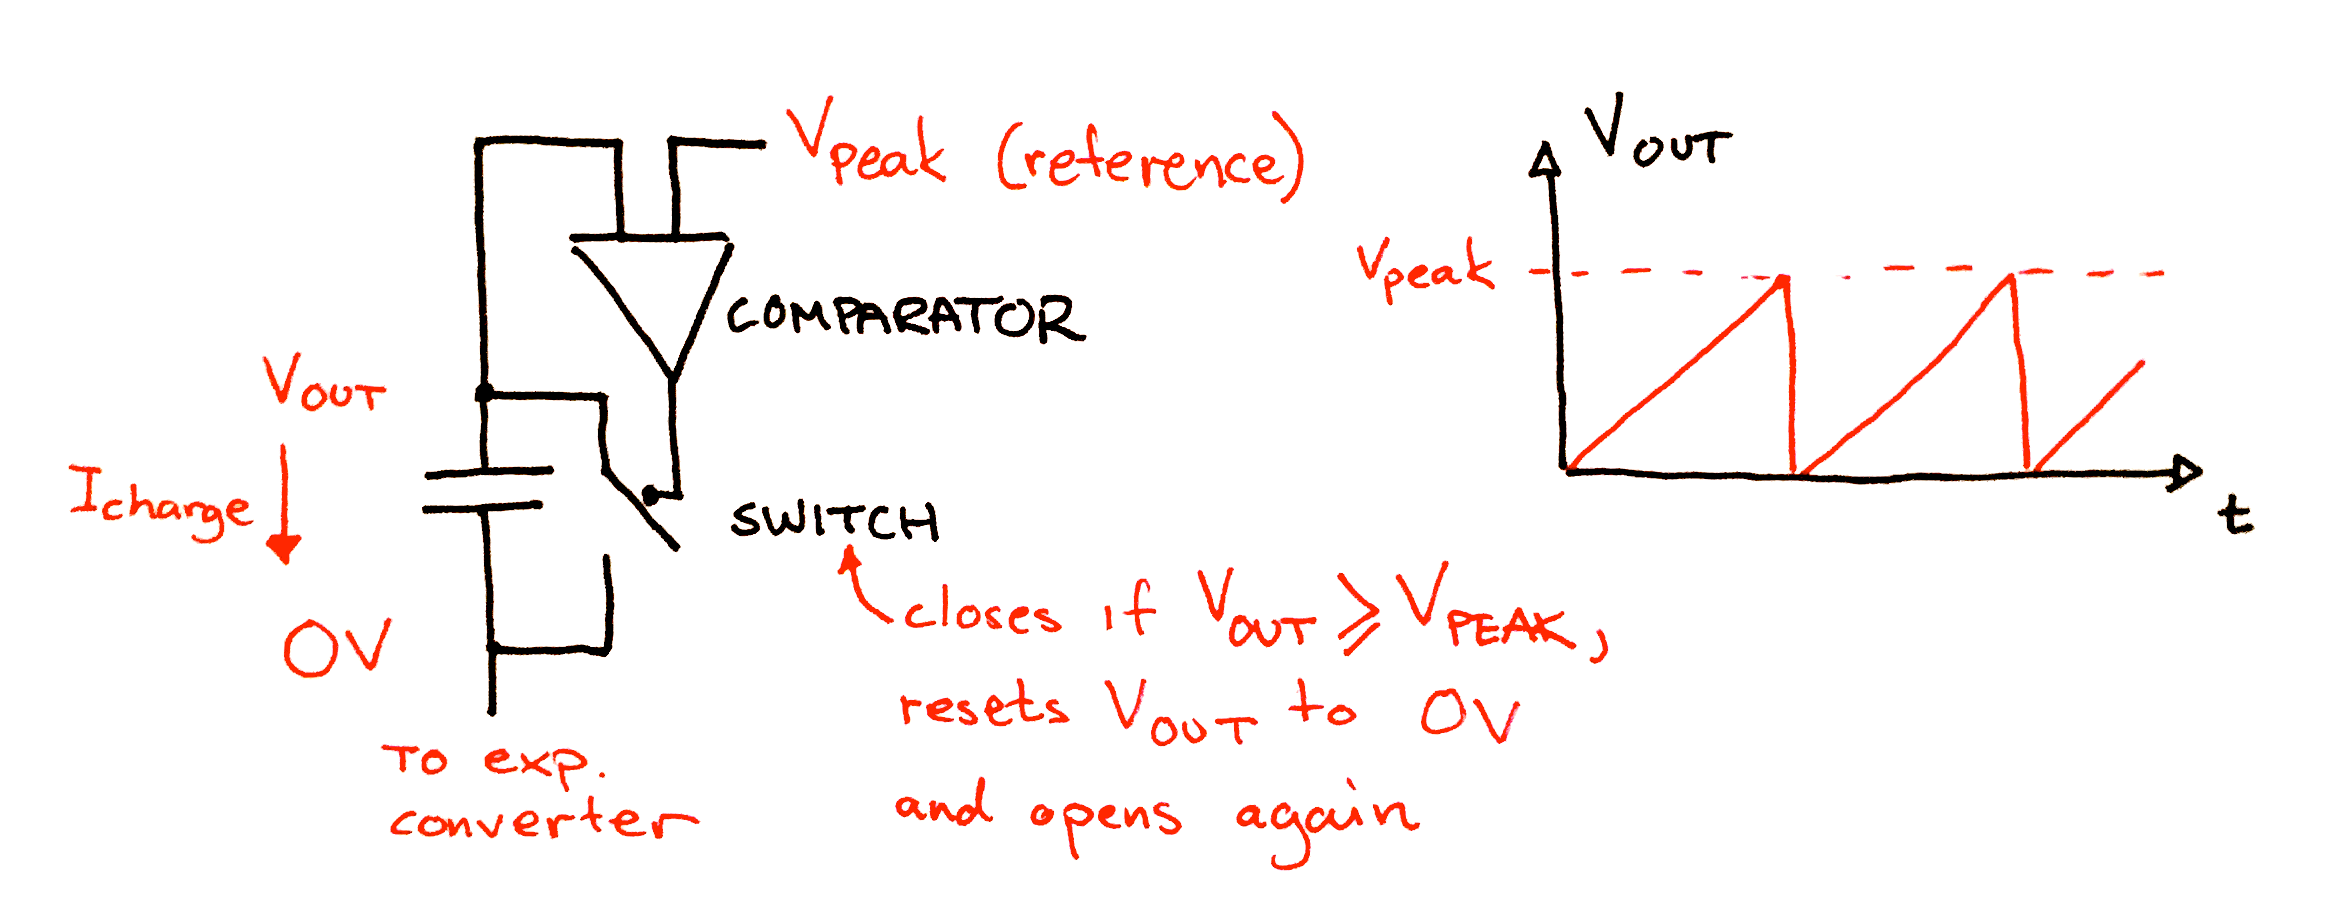 Vpeak (reference)
COMPARATOR
VOUT
Icharge
0V
SWITCH
closes if VOUT ⩾ VPEAK,
resets VOUT to 0V
and opens again
To exp.
converter
VOUT
Vpeak
t